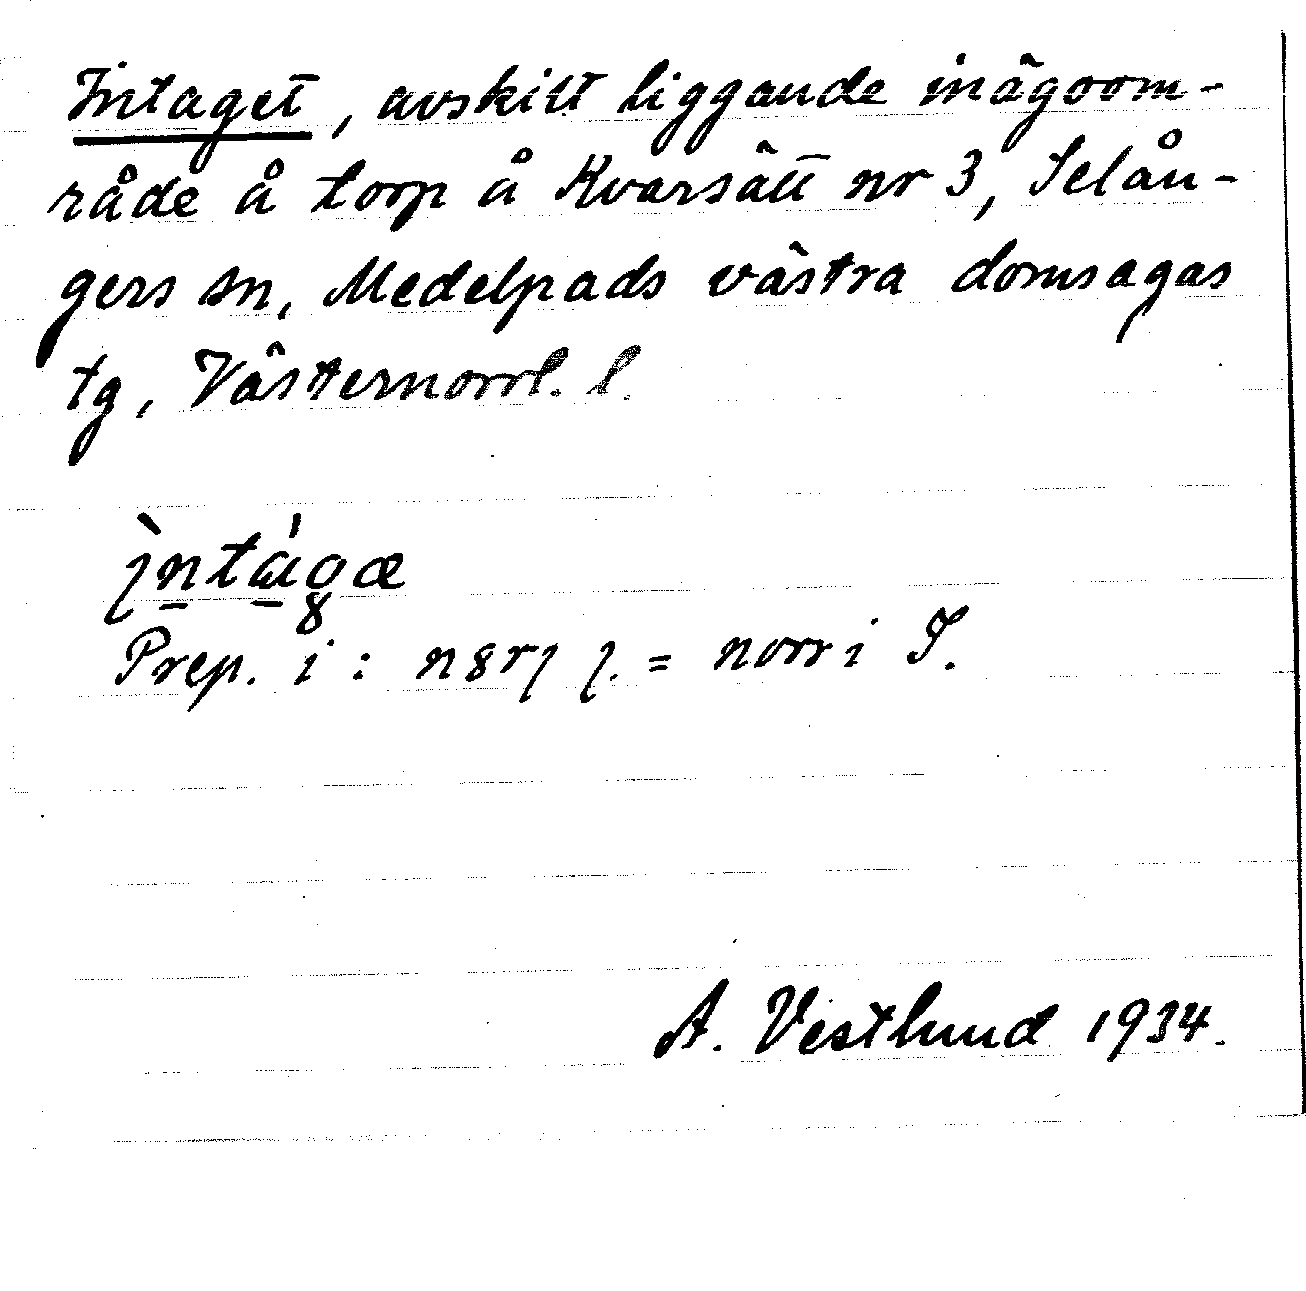 Intaget, avskilt liggande inägoom-
råde å torp å Kvarsätt nr 3, Selån-
gers sn, Medelpads västra domsagas
tg, Västernorrl. l.
Prep. i : = norr i I.
A. Vestlund 1934.